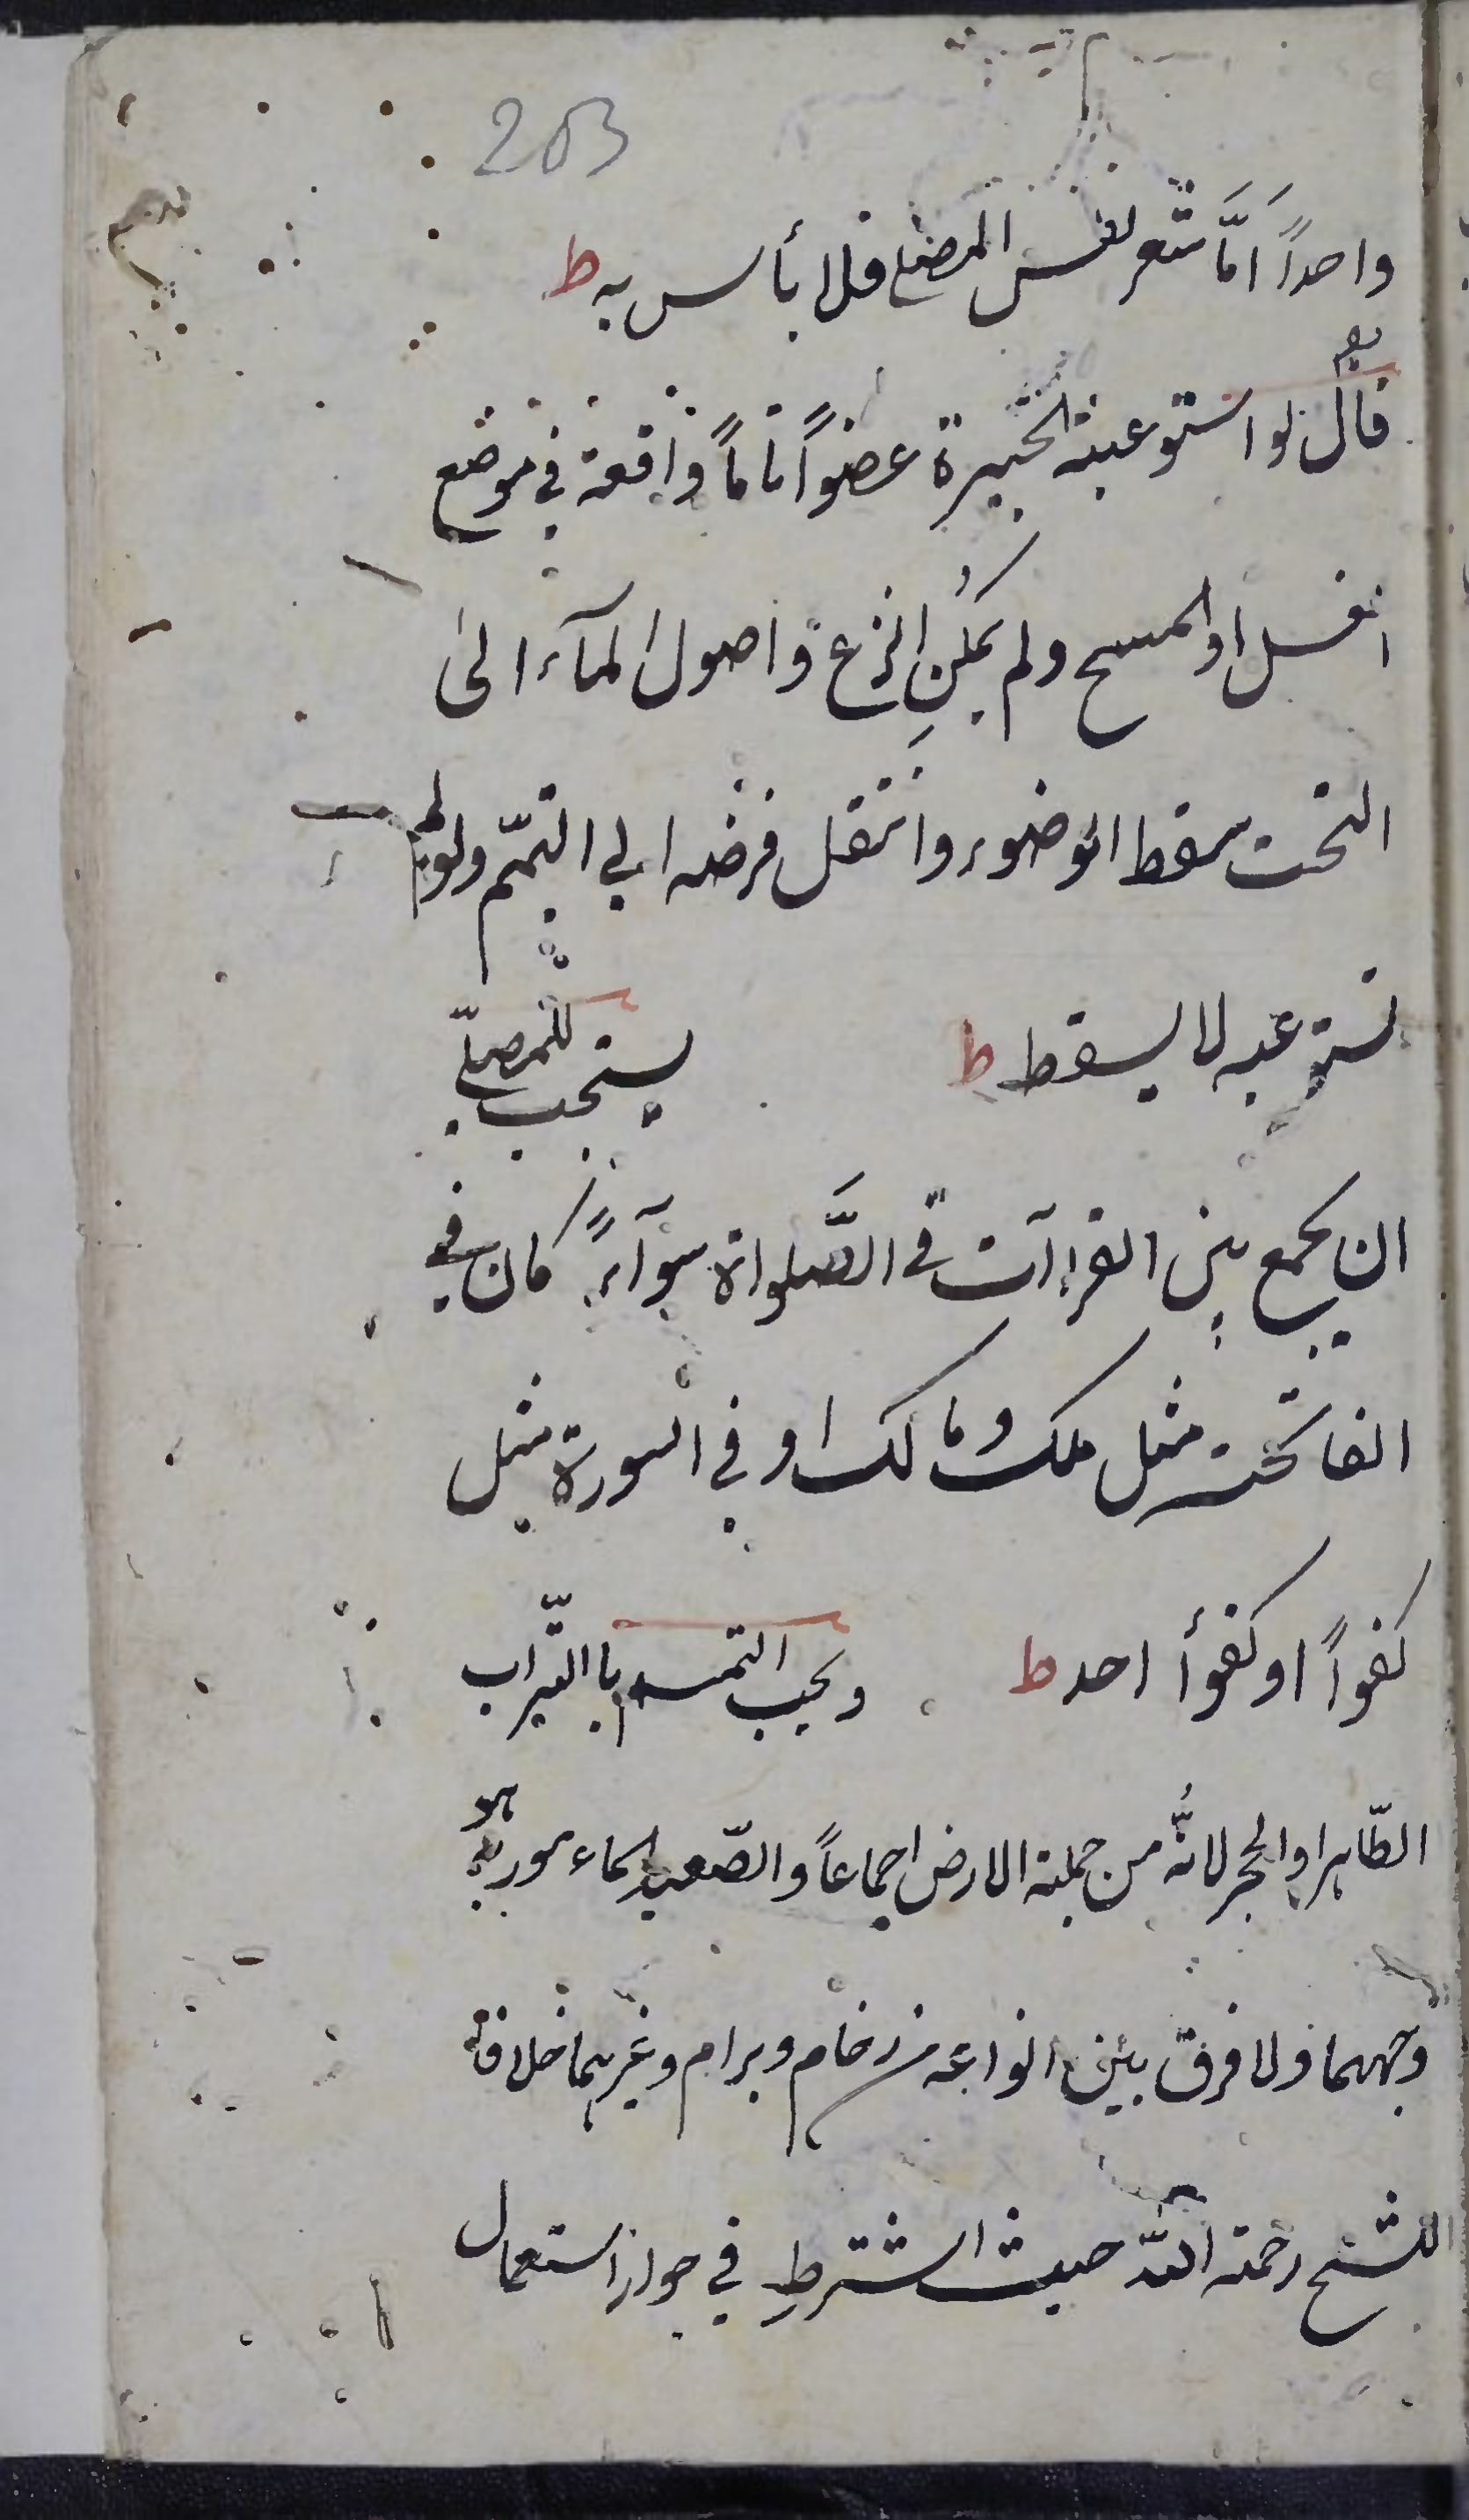 203
واحداً امَّا شعر نفس المصلي فلا بأس به ط
قال لو استوعبة الجبيرة عضواً تاماً واقعة في موضع
الغسل او المسح ولم يمكنِ النزع واصول المآء الى
التحت سقط الوضوء وانتقل فرضه الي التيمّم ولو لم
تستوعبه لا يسقط ط يستحب للمصلّي
ان يجمع بين القراآت في الصَّلواة سوآءً كان في
الفاتحة مثل ملك ومالك او في السورة مثل
كفواً او كفوأ احد ط ويجب التيمم باالتّراب
الطّاهر او الحجر لانَّه من جملة الارض اجماعاً والصّعيد
وجههما ولا فرق بين انواعه من رخام وبرام وغيرهما خلافا
للشيخ رحمة اللّه حيث اشترط في جواز استعمال